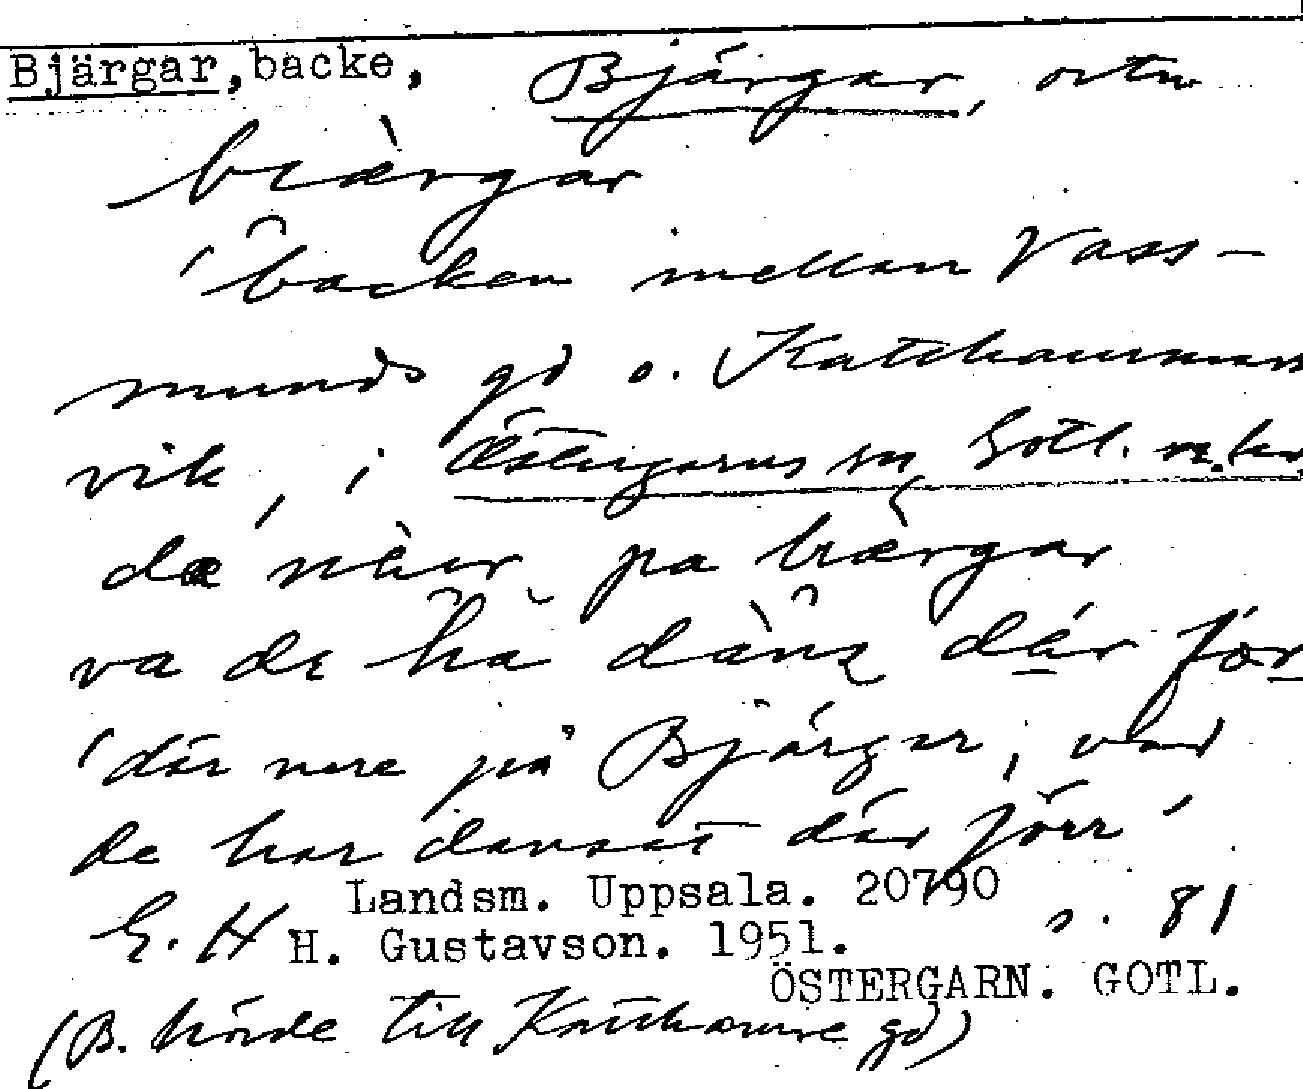 Bjärgar, backe, Bjärgar, ortn
biärgar
'backen mellan Vass-
munds gd o. Katthammars
vik, i Östergarns sn Gotl. n. hd
dǣ närr pa biärgar
va de ha dans där för
'där nere på Bjärgar, vad
de har dansat där förr'
Landsm. Uppsala. 20790
E. H H. Gustavson. 1951. s. 81
ÖSTERGARN. GOTL.
(B. hörde till Katthamre gd)